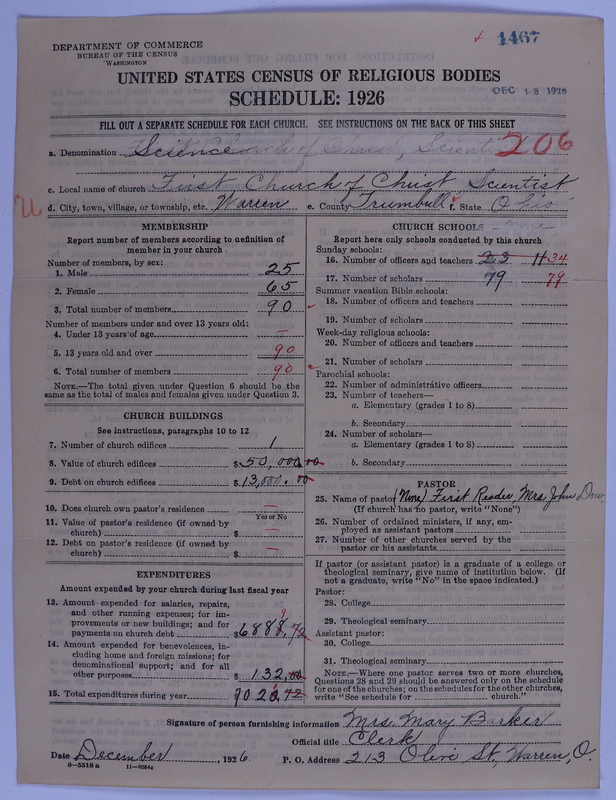 DEPARTMENT OF COMMERCE
BUREAU OF THE CENSUS
WASHINGTON
1467
DEC 18 1926
UNITED STATES CENSUS OF RELIGIOUS BODIES
SCHEDULE: 1926
FILL OUT A SEPARATE SCHEDULE FOR EACH CHURCH. SEE INSTRUCTIONS ON THE BACK OF THIS SHEET
a. Denomination Science Church of Christ, Scientist 206
c. Local name of church First Church of Christ, Scientist
d. City, town, village, or township, etc. Warren e. County Trumbull f. State Ohio
MEMBERSHIP
Report number of members according to definition of
member in your church
Number of members, by sex:
1. Male 25
2. Female 65
3. Total number of members 90
Number of members under and over 13 years old:
4. Under 13 years of age —
5. 13 years old and over 90
6. Total number of members 90
NOTE.—The total given under Question 6 should be the
same as the total of males and females given under Question 3.
CHURCH BUILDINGS
See instructions, paragraphs 10 to 12
7. Number of church edifices 1
8. Value of church edifices $50,000.00
9. Debt on church edifices $13,000.00
10. Does church own pastor's residence —
Yes or No
11. Value of pastor's residence (if owned by
church) $ —
12. Debt on pastor's residence (if owned by
church) $ —
EXPENDITURES
Amount expended by your church during last fiscal year
13. Amount expended for salaries, repairs,
and other running expenses; for im-
provements or new buildings; and for
payments on church debt $6888.72
9
14. Amount expended for benevolences, in-
cluding home and foreign missions; for
denominational support; and for all
other purposes $132.00
15. Total expenditures during year 7020.72
CHURCH SCHOOLS
Report here only schools conducted by this church
Sunday schools:
16. Number of officers and teachers 23 11 34
17. Number of scholars 79 79
Summer vacation Bible schools:
18. Number of officers and teachers
19. Number of scholars
Week-day religious schools:
20. Number of officers and teachers
21. Number of scholars
Parochial schools:
22. Number of administrative officers
23. Number of teachers—
a. Elementary (grades 1 to 8)
b. Secondary
24. Number of scholars—
a. Elementary (grades 1 to 8)
b. Secondary
PASTOR
25. Name of pastor (None) First Reader, Mrs. John
(If church has no pastor, write "None")
26. Number of ordained ministers, if any, em-
ployed as assistant pastors
27. Number of other churches served by the
pastor or his assistants
If pastor (or assistant pastor) is a graduate of a college or
theological seminary, give name of institution below. (If
not a graduate, write "No" in the space indicated.)
Pastor:
28. College
29. Theological seminary
Assistant pastor:
30. College
31. Theological seminary
NOTE.—Where one pastor serves two or more churches,
Questions 28 and 29 should be answered only on the schedule
for one of the churches; on the schedules for the other churches,
write "See schedule for church."
Signature of person furnishing information Mrs. Mary Barker
Official title Clerk
Date December, 1926 P. O. Address 213 Olive St., Warren, O.
8—5518 a